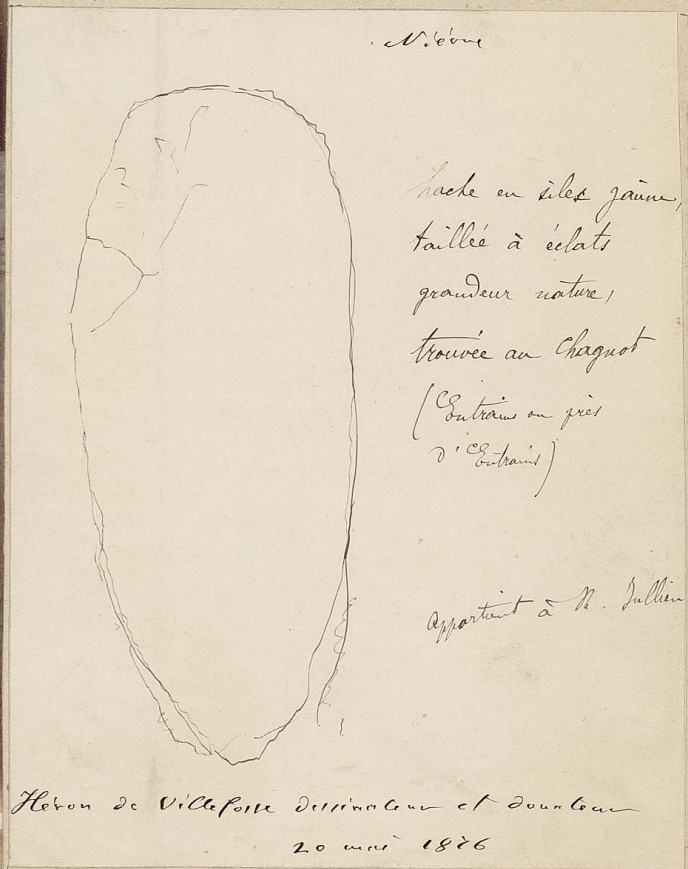 Nièvre
hache en silex jaune,
taillée à éclats
grandeur nature,
trouvée au Chagnot
(Entrains ou près
d'Entrains)
appartient à M. Jullien
Héron de Villefosse dessinateur et donateur
20 mai 1876